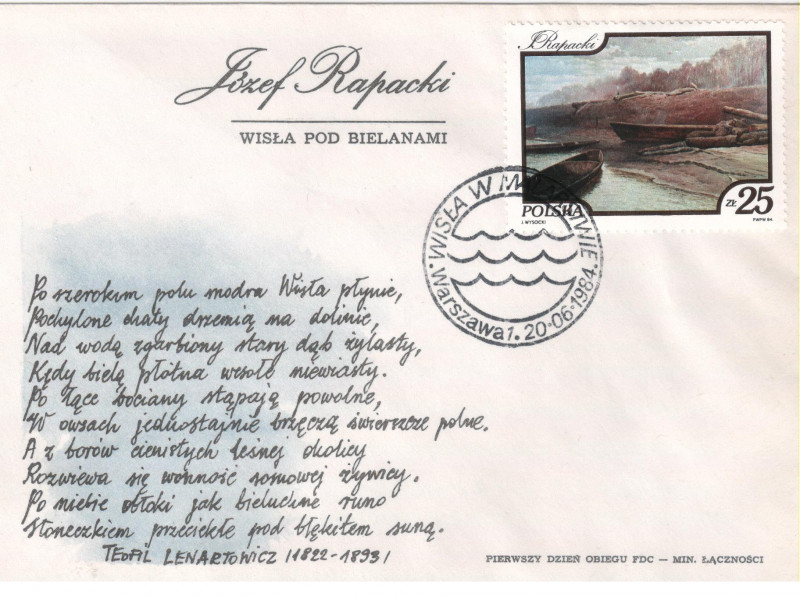 Józef Rapacki
WISŁA POD BIELANAMI
J. Rapacki
POLSKA
J. WYSOCKI
ZŁ 25
PWPW 84.
WISŁA W MALARSTWIE
Warszawa 1. 20-06-1984.
Po szerokim polu modra Wisła płynie,
Pochylone chaty drzemią na dolinie,
Nad wodą zgarbiony stary dąb żylasty,
Kędy bielą płótna wesołe niewiasty.
Po łące bociany stąpają powolne,
W owsach jednostajnie brzęczą świerszcze polne.
A z borów cienistych leśnej okolicy
Rozwiewa się wonność sosnowej żywicy.
Po niebie obłoki jak bieluchne runo
Słoneczkiem przeciekłe pod błękitem suną.
TEOFIL LENARTOWICZ /1822-1893/
PIERWSZY DZIEŃ OBIEGU FDC — MIN. ŁĄCZNOŚCI